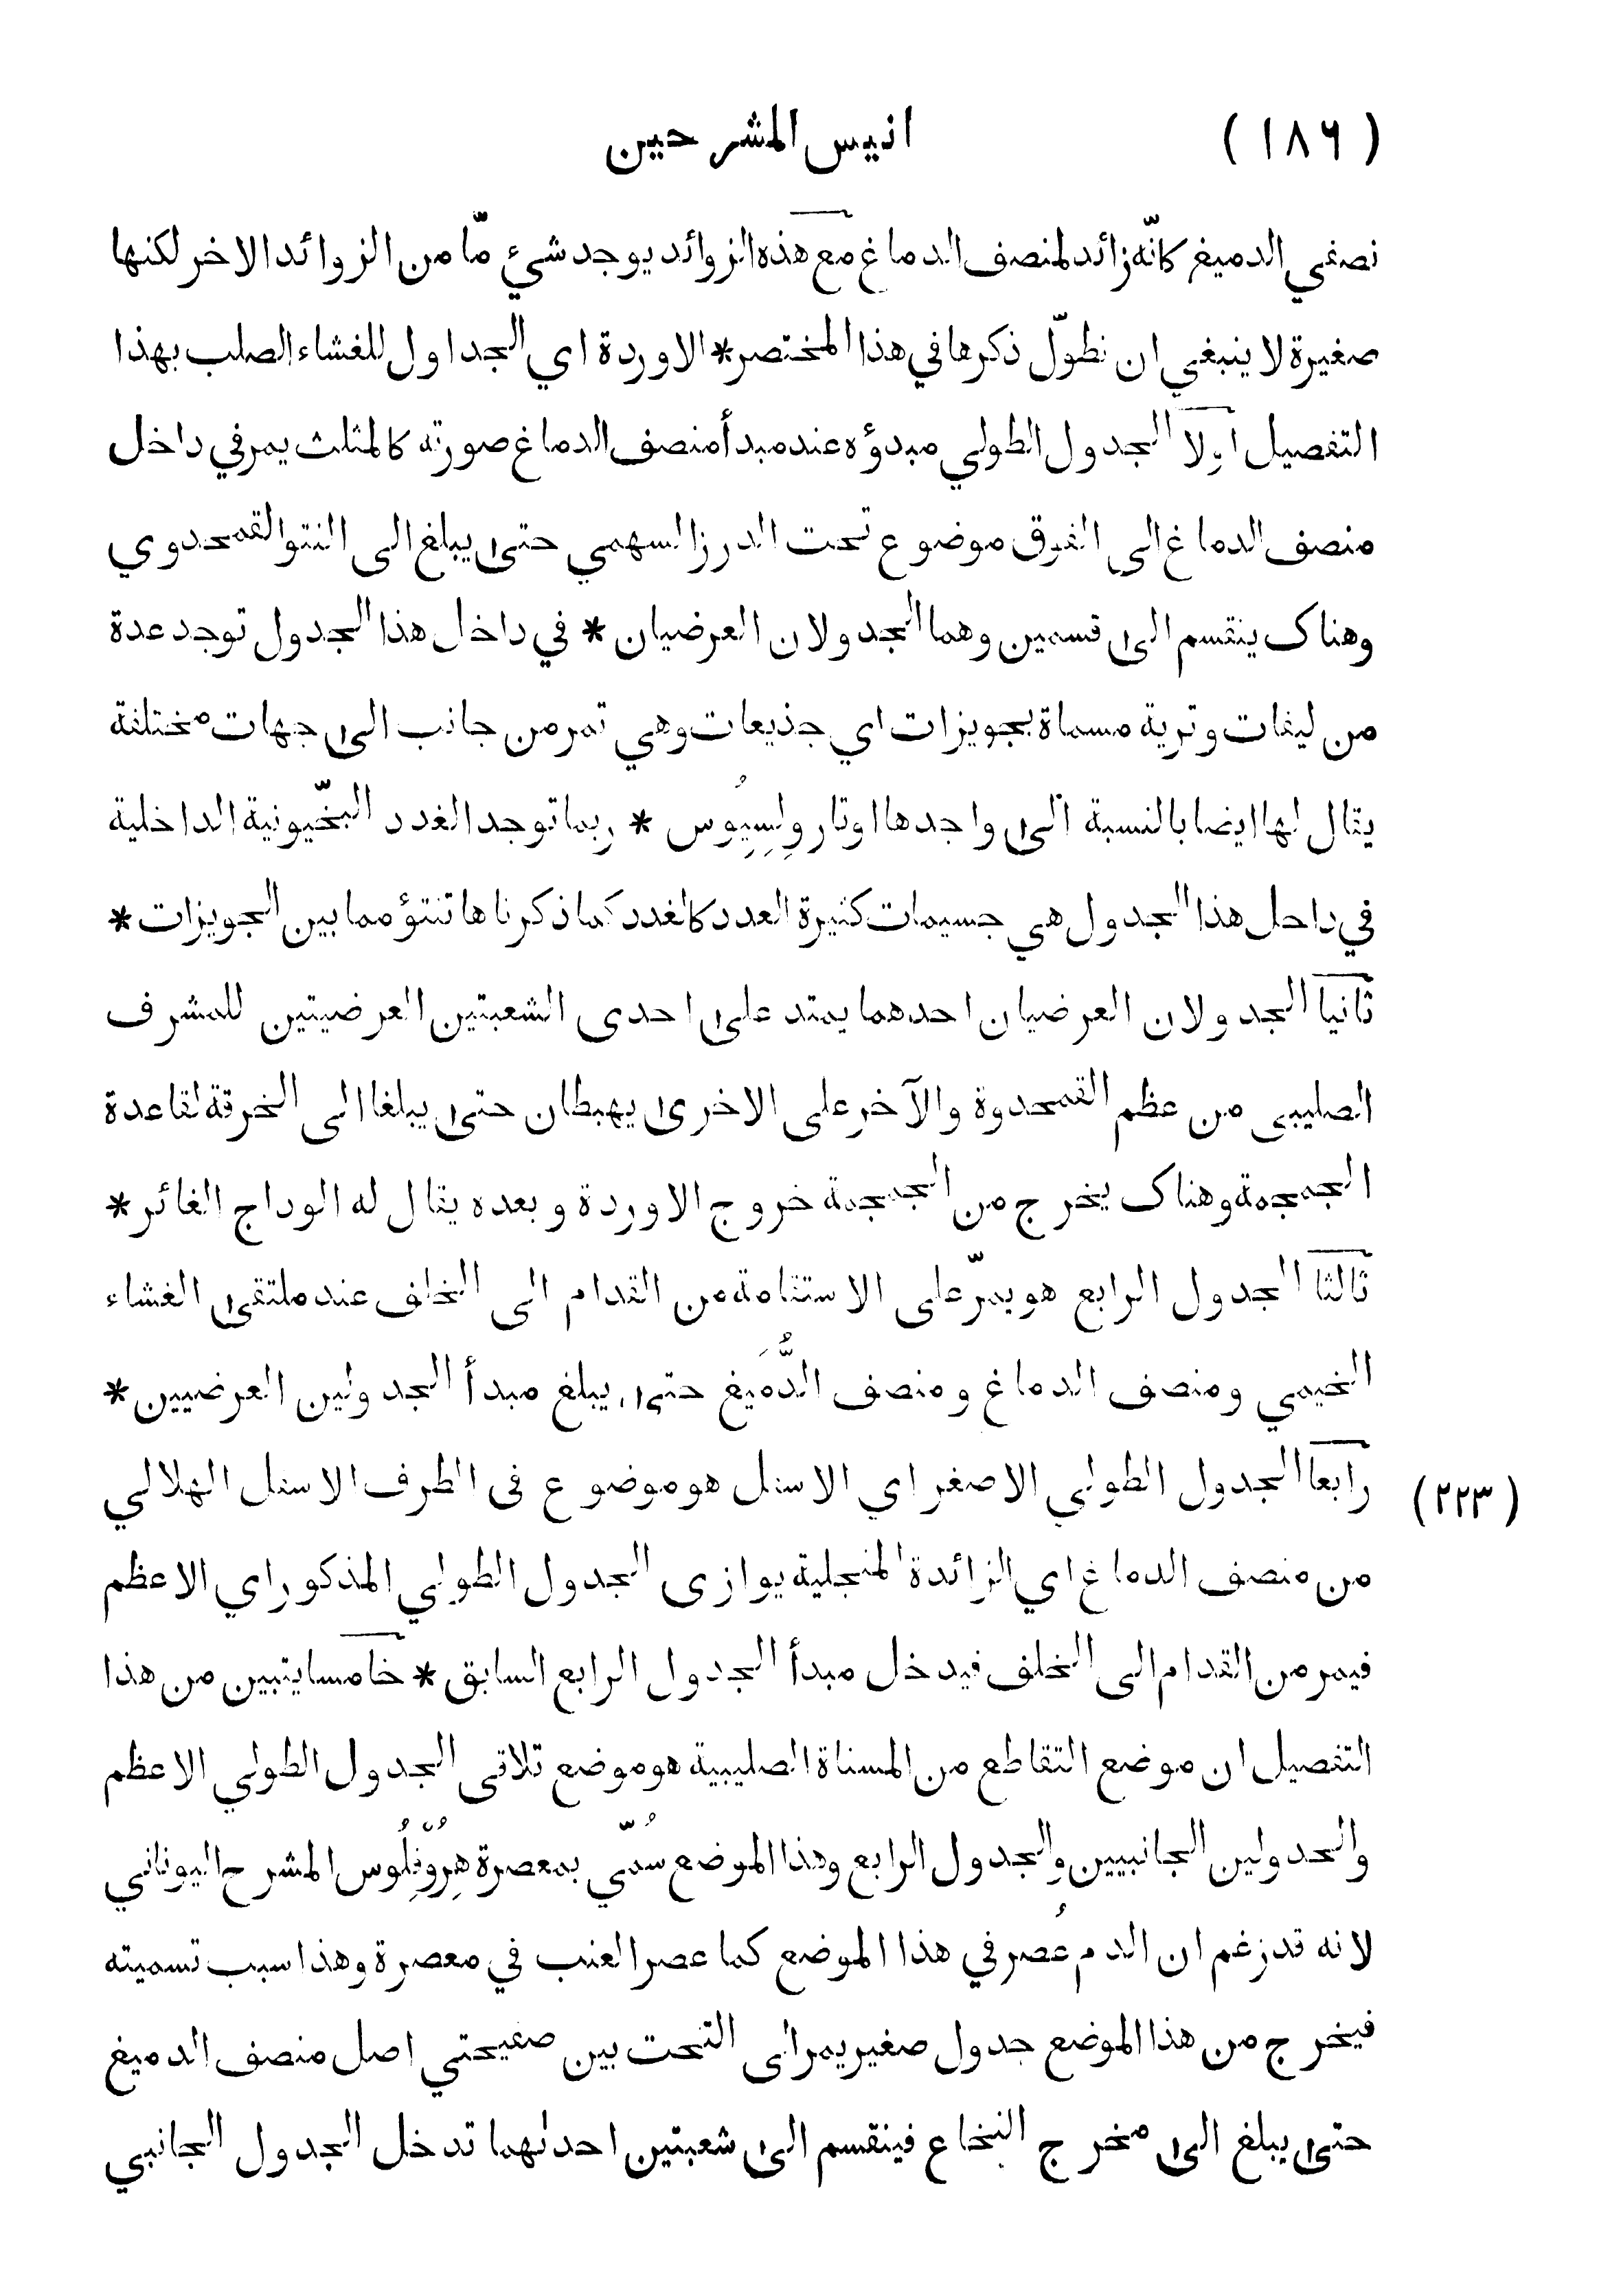 (١٨٦) انيس المشرحين
نصفي الدميغ كانّه زائد لمنصف الدماغ مع هذه الزوائد يوجد شيء مّا من الزوائد الاخر لكنها
صغيرة لا ينبغي ان نطوّل ذكرها في هذا المختصر * الاوردة اي الجداول للغشاء الصلب بهذا
التفصيل اولا الجدول الطولي مبدؤه عند مبدأ منصف الدماغ صورته كالمثلث يمر في داخل
منصف الدماغ الى الفوق موضوع تحت الدرز السهمي حتى يبلغ الى النتو القمحدوي
وهناك ينقسم الى قسمين وهما الجدولان العرضيان * في داخل هذا الجدول توجد عدة
من ليفات وترية مسماة بجويزات اي جذيعات وهي تمر من جانب الى جهات مختلفة
يقال لها ايضا بالنسبة الى واجدها اوتار ولِسِيُوس * ربما توجد الغدد البخّيونية الداخلية
في داخل هذا الجدول هي جسيمات كثيرة العدد كالغدد كما ذكرناها تنتؤ مما بين الجويزات *
ثانيا الجدولان العرضيان احدهما يمتد على احدى الشعبتين العرضيتين للمشرف
الصليبي من عظم القمحدوة والآخر على الاخرى يهبطان حتى يبلغا الى الخرقة لقاعدة
الجمجمة وهناك يخرج من الجمجمة خروج الاوردة وبعده يقال له الوداج الغائر *
ثالثا الجدول الرابع هو يمرّ على الاستقامة من القدام الى الخلف عند ملتقى الغشاء
الخيمي ومنصف الدماغ ومنصف الدُّمَيغ حتى يبلغ مبدأ الجدولين العرضيين *
رابعا الجدول الطولي الاصغر اي الاسفل هو موضوع فى الطرف الاسفل الهلالي (٢٢٣)
من منصف الدماغ اي الزائدة المنجلية يوازى الجدول الطولي المذكور اي الاعظم
فيمر من القدام الى الخلف فيدخل مبدأ الجدول الرابع السابق * خامسا يتبين من هذا
التفصيل ان موضع التقاطع من المسناة الصليبية هو موضع تلاقى الجدول الطولي الاعظم
والجدولين الجانبيين والجدول الرابع وهذا الموضع سُمّي بمعصرة هِرُوفِلُوس المشرح اليوناني
لانه قد زعم ان الدم عُصر في هذا الموضع كما عصر العنب في معصرة وهذا سبب تسميته
فيخرج من هذا الموضع جدول صغير يمر الى التحت بين صفيحتي اصل منصف الدميغ
حتى يبلغ الى مخرج النخاع فينقسم الى شعبتين احدٰىهما تدخل الجدول الجانبي